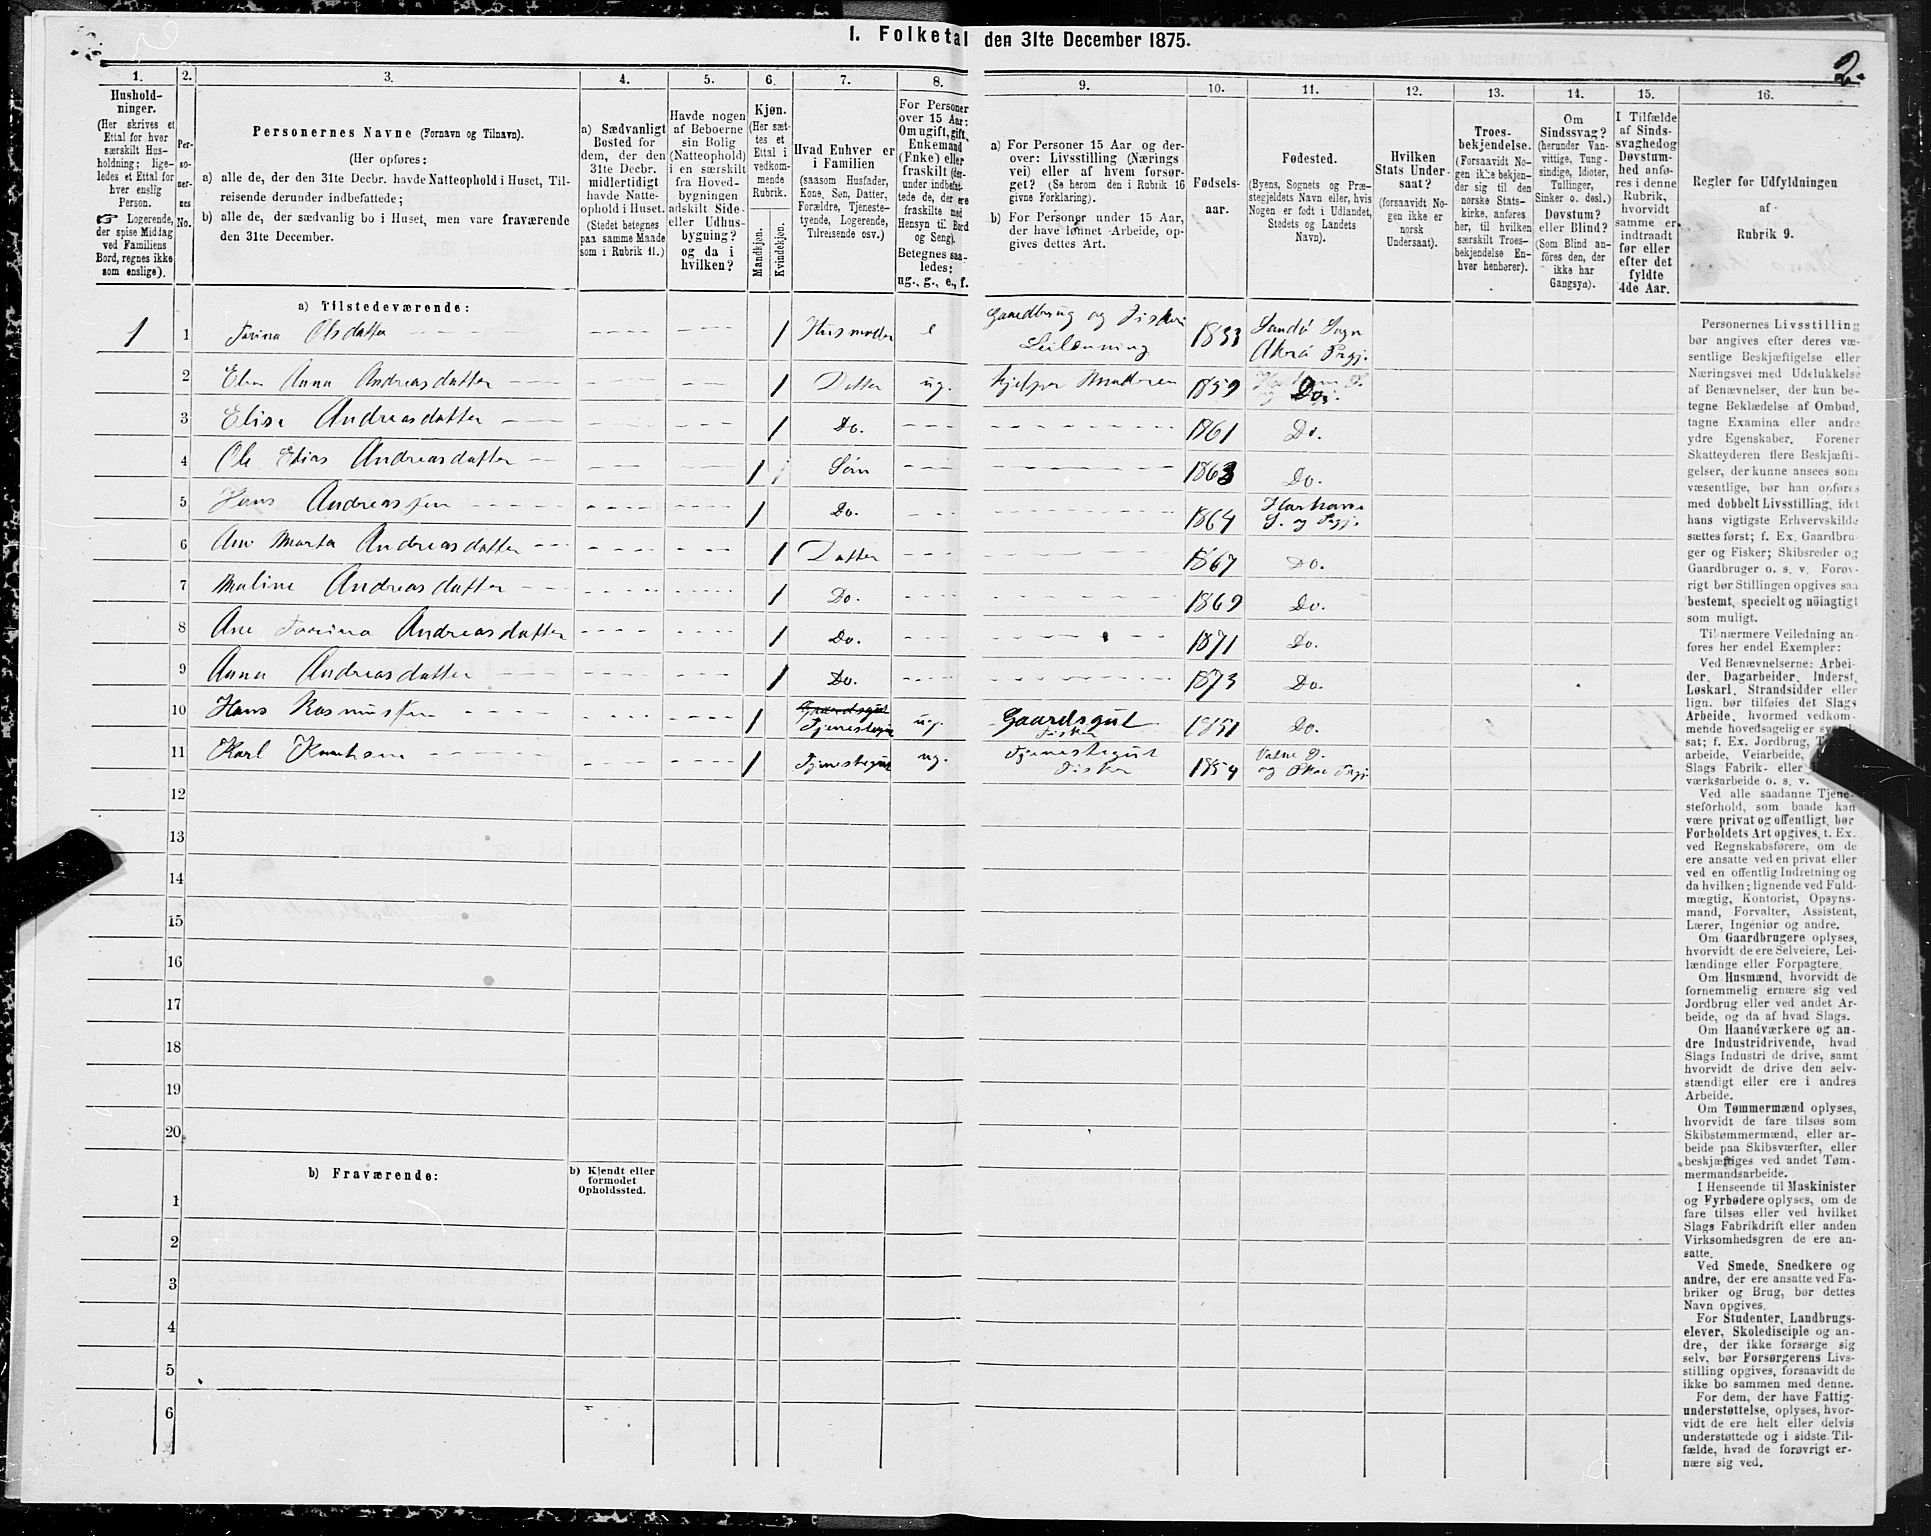 1. Folketal den 31te December 1875.
2.
1.
2.
3.
4.
5.
6.
7.
8.
9.
10.
11.
12.
13.
14.
15.
16.
Hushold-
ninger.
(Her skrives et
Ettal for hver
særskilt Hus-
holdning; lige-
ledes et Ettal for
hver enslig
Person.
☞ Logerende,
der spise Middag
ved Familiens
Bord, regnes ikke
som enslige).
Per-
so-
ner-
nes
No.
Personernes Navne (Fornavn og Tilnavn).
(Her opføres:
a) alle de, der den 31te Decbr. havde Natteophold i Huset, Til-
reisende derunder indbefattede;
b) alle de, der sædvanlig bo i Huset, men vare fraværende
den 31te December.
a) Sædvanligt
Bosted for
dem, der den
31te Decbr.
midlertidigt
havde Natte-
ophold i Huset.
(Stedet betegnes
paa samme Maade
som i Rubrik 11.)
Havde nogen
af Beboerne
sin Bolig
(Natteophold)
i en særskilt
fra Hoved-
bygningen
adskilt Side-
eller Udhus-
bygning?
og da i
hvilken?
Kjøn.
(Her sæt-
tes et
Ettal i
vedkom-
mende
Rubrik.
Mandkjøn.
Kvindekjøn.
Hvad Enhver er
i Familien
(saasom Husfader,
Kone, Søn, Datter,
Forældre, Tjeneste-
tyende, Logerende,
Tilreisende osv.)
For Personer
over 15 Aar:
Om ugift, gift,
Enkemand
(Enke) eller
fraskilt (der-
under indbefat-
tede de, der ere
fraskilte med
Hensyn til Bord
og Seng).
Betegnes saa-
ledes:
ug., g., e., f.
a) For Personer 15 Aar og der-
over: Livsstilling (Nærings
vei) eller af hvem forsør-
get? (Se herom den i Rubrik 16
givne Forklaring).
b) For Personer under 15 Aar,
der have lønnet Arbeide, op-
gives dettes Art.
Fødsels-
aar.
Fødested.
(Byens, Sognets og Præ-
stegjeldets Navn eller, hvis
Nogen er født i Udlandet,
Stedets og Landets
Navn).
Hvilken
Stats Under-
saat?
(forsaavidt No-
gen ikke er
norsk
Undersaat).
Troes-
bekjendelse.
(Forsaavidt No-
gen ikke bekjen-
der sig til den
norske Stats-
kirke, anføres
her, til hvilken
særskilt Troes-
bekjendelse En-
hver henhører).
Om
Sindssvag?
(herunder Van-
vittige, Tung-
sindige, Idioter,
Tullinger,
Sinker o. desl.)
Døvstum?
eller Blind?
(Som Blind an-
føres den, der
ikke har
Gangsyn).
I Tilfælde
af Sinds-
svaghed og
Døvstum-
hed anfø-
res i denne
Rubrik,
hvorvidt
samme er
indtraadt
før eller
efter det
fyldte
4de Aar.
Regler for Udfyldningen
af
Rubrik 9.
a) Tilstedeværende:
1 1 Olsdatter 1 Husmoder e Gaardbrug og Fiskeri 1833 Sandø Sogn
Leilænning
2 Anna Andreasdatter 1 Datter ug. hjelper Moderen 1859 Do.
3 Elise Andreasdatter 1 Do. 1861 Do.
4 Ole Elias Andreasdatter 1 Søn 1863 Do.
5 Hans Andreassen 1 Do. 1864 Harham
S. og Prgj.
6 Ane Marta Andreasdatter 1 Datter 1867 Do.
7 Maline Andreasdatter 1 Do. 1869 Do.
8 Ane Andreasdatter 1 Do. 1871 Do.
9 Anna Andreasdatter 1 Do. 1873 Do.
10 Hans Rasmussen 1 Gaardsgut Tjenestegut ug. Gaardsgut Fisker 1851 Do.
11 Karl Knudsen 1 Tjenestegut ug. Tjenestegut Fisker 1854 Vatne S.
12
13
14
15
16
17
18
19
20
b) Fraværende:
b) Kjendt eller
formodet
Opholdssted.
1
2
3
4
5
6
Personernes Livsstilling
bør angives efter deres væ-
sentlige Beskjæftigelse eller
Næringsvei med Udelukkelse
af Benævnelser, der kun be-
tegne Beklædelse af Ombud,
tagne Examina eller andre
ydre Egenskaber. Forener
Skatteyderen flere Beskjæfti-
gelser, der kunne ansees som
væsentlige, bør han opføres
med dobbelt Livsstilling, idet
hans vigtigste Erhvervskilde
sættes først; f. Ex. Gaardbru-
ger og Fisker; Skibsreder og
Gaardbruger o. s. v. Forøv-
rigt bør Stillingen opgives saa
bestemt, specielt og nöiagtigt
som muligt.
Til nærmere Veiledning an-
føres her endel Exempler:
Ved Benævnelserne: Arbei-
der, Dagarbeider, Inderst,
Løskarl, Strandsidder eller
lign. bør tilføies det Slags
Arbeide, hvormed vedkom-
mende hovedsagelig er syssel-
sat; f. Ex. Jordbrug,
arbeide, Veiarbeide,
Slags Fabrik- eller
værksarbeide o. s. v.
Ved alle saadanne Tjene-
steforhold, som baade kan
være privat og offentligt, bør
Forholdets Art opgives, t. Ex.
ved Regnskabsførere, om de
ere ansatte ved en privat eller
ved en offentlig Indretning og
da hvilken; lignende ved Fuld-
mægtig, Kontorist, Opsyns-
mand, Forvalter, Assistent,
Lærer, Ingeniør og andre.
Om Gaardbrugere oplyses,
hvorvidt de ere Selveiere, Lei-
lændinge eller Forpagtere.
Om Husmænd, hvorvidt de
fornemmelig ernære sig ved
Jordbrug eller ved andet Ar-
beide, og da af hvad Slags.
Om Haandværkere og an-
dre Industridrivende, hvad
Slags Industri de drive, samt
hvorvidt de drive den selv-
stændigt eller ere i andres
Arbeide.
Om Tømmermænd oplyses,
hvorvidt de fare tilsøs som
Skibstømmermænd, eller ar-
beide paa Skibsværfter, eller
beskjæftiges ved andet Tøm-
mermandsarbeide.
I Henseende til Maskinister
og Fyrbødere oplyses, om de
fare tilsøs eller ved hvilket
Slags Fabrikdrift eller anden
Virksomhedsgren de ere an-
satte.
Ved Smede, Snedkere og
andre, der ere ansatte ved Fa-
briker og Brug, bør dettes
Navn opgives.
For Studenter, Landbrugs-
elever, Skoledisciple og an-
dre, der ikke forsørge sig
selv, bør Forsørgerens Livs-
stilling opgives, forsaavidt de
ikke bo sammen med denne.
For dem, der have Fattig-
understøttelse, oplyses, hvor-
vidt de ere helt eller delvis
understøttede og i sidste Til-
fælde, hvad de forøvrigt er-
nære sig ved.